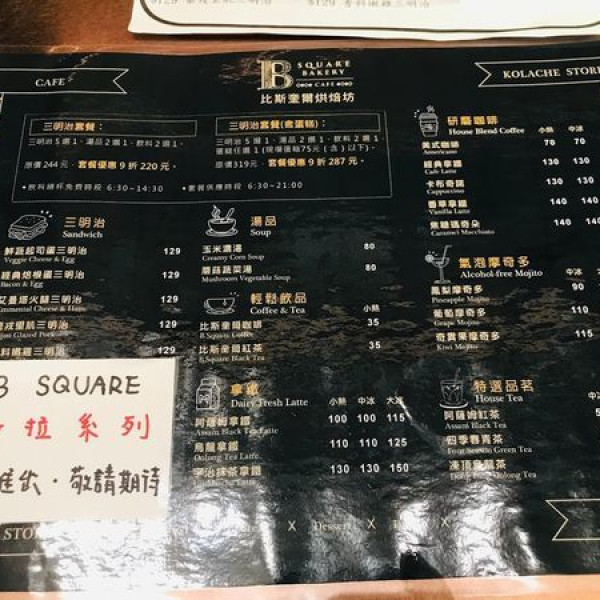 CAFE
B SQUARE
BAKERY
CAFE
比斯奎爾烘焙坊
KOLACHE STORE
三明治套餐：
三明治 5 選 1、湯品 2 選 1、飲料 2 選 1。
原價 244 元，套餐優惠 9 折 220 元。
三明治套餐(煮蛋糕)：
原價319元，套餐優惠 9 折 287 元。
•飲料續杯免費時段 6:30~14:30
•套餐供應時段 6:30~21:00
三明治
Sandwich
鮮蔬起司蛋三明治 129
Veggie Cheese & Egg
經典焙根蛋三明治 129
Bacon & Egg
129
Emmental Cheese & Ham
129
Glazed Pork
湯品
Soup
玉米濃湯 80
Creamy Corn Soup
蘑菇蔬菜湯 80
Mushroom Vegetable Soup
輕鬆飲品
Coffee & Tea 小熱
比斯奎爾咖啡 35
B Square Coffee
比斯奎爾紅茶 35
B.Square Black Tea
拿鐵
Dairy Fresh Latte 小熱 中冰 大冰
阿薩姆拿鐵 100 100 115
Assam Black Tea Latte
烏龍拿鐵 110 110 125
Oolong Tea Latte
宇治抹茶拿鐵 130 130 150
研磨咖啡
House Blend Coffee 小熱 中冰
美式咖啡 70 70
Americano
經典拿鐵 130 130
Cafe Latte
卡布奇諾 130 130
Cappuccino
香草拿鐵 140 140
Vanilla Latte
焦糖瑪奇朵 140 140
Caramel Macchiato
氣泡摩奇多
Alcohol-free Mojito 中冰
鳳梨摩奇多 90
Pineapple Mojito
葡萄摩奇多 110
Grape Mojito
奇異果摩奇多 115
Kiwi Mojito
特選品茗
House Tea
阿薩姆紅茶
Assam Black Tea
四季春青茶
Four Season Green Tea
凍頂烏龍茶
Oolong Tea
B SQUARE
拉系列
進出・敬請期待
X Dessert X X